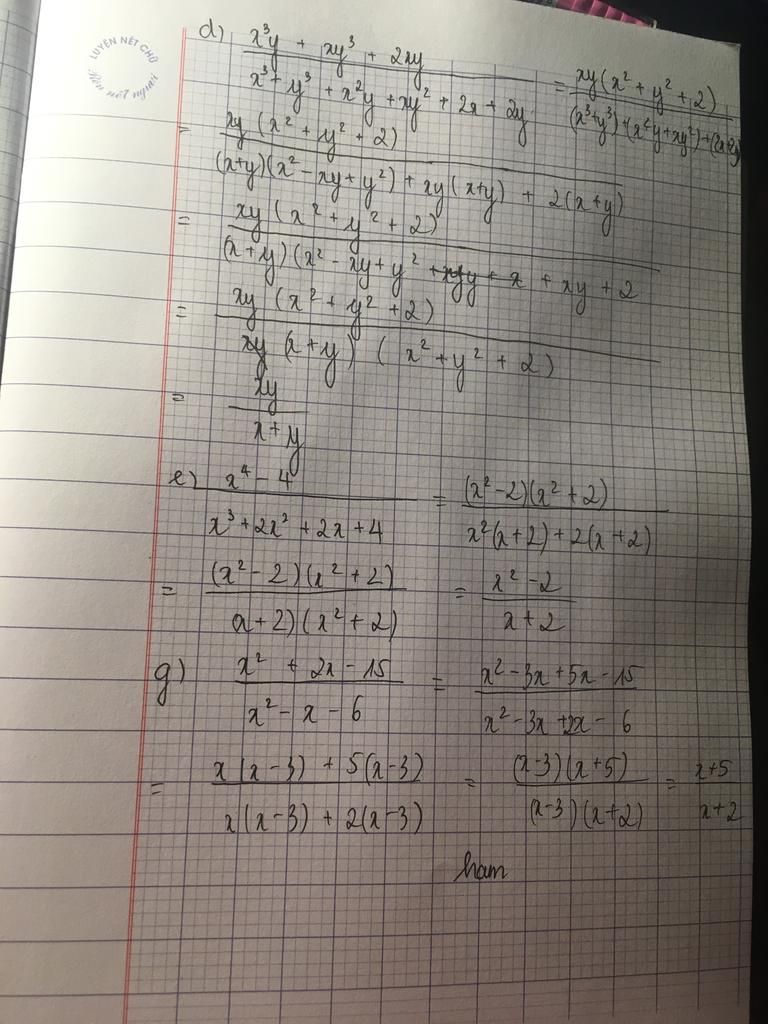 LUYỆN NÉT CHỮ
Rèn nết người
d) x³y + xy³ + 2xy / x³ + y³ + x²y + xy² + 2x + 2y = xy(x² + y² + 2) / (x³+y³)+(x²y+xy²)+(2x+2y)
= xy(x² + y² + 2) / (x+y)(x² - xy + y²) + xy(x+y) + 2(x+y)
= xy(x² + y² + 2) / (x+y)(x² - xy + y² + x + xy + 2
= xy(x² + y² + 2) / (x+y)(x² + y² + 2)
= xy / x+y
e) x⁴ - 4 / x³ + 2x² + 2x + 4 = (x² - 2)(x² + 2) / x²(x+2) + 2(x+2)
= (x² - 2)(x² + 2) / x+2)(x² + 2) = x² - 2 / x+2
g) x² + 2x - 15 / x² - x - 6 = x² - 3x + 5x - 15 / x² - 3x + 2x - 6
= x(x-3) + 5(x-3) / x(x-3) + 2(x-3) = (x-3)(x+5) / (x-3)(x+2) = x+5 / x+2
ham